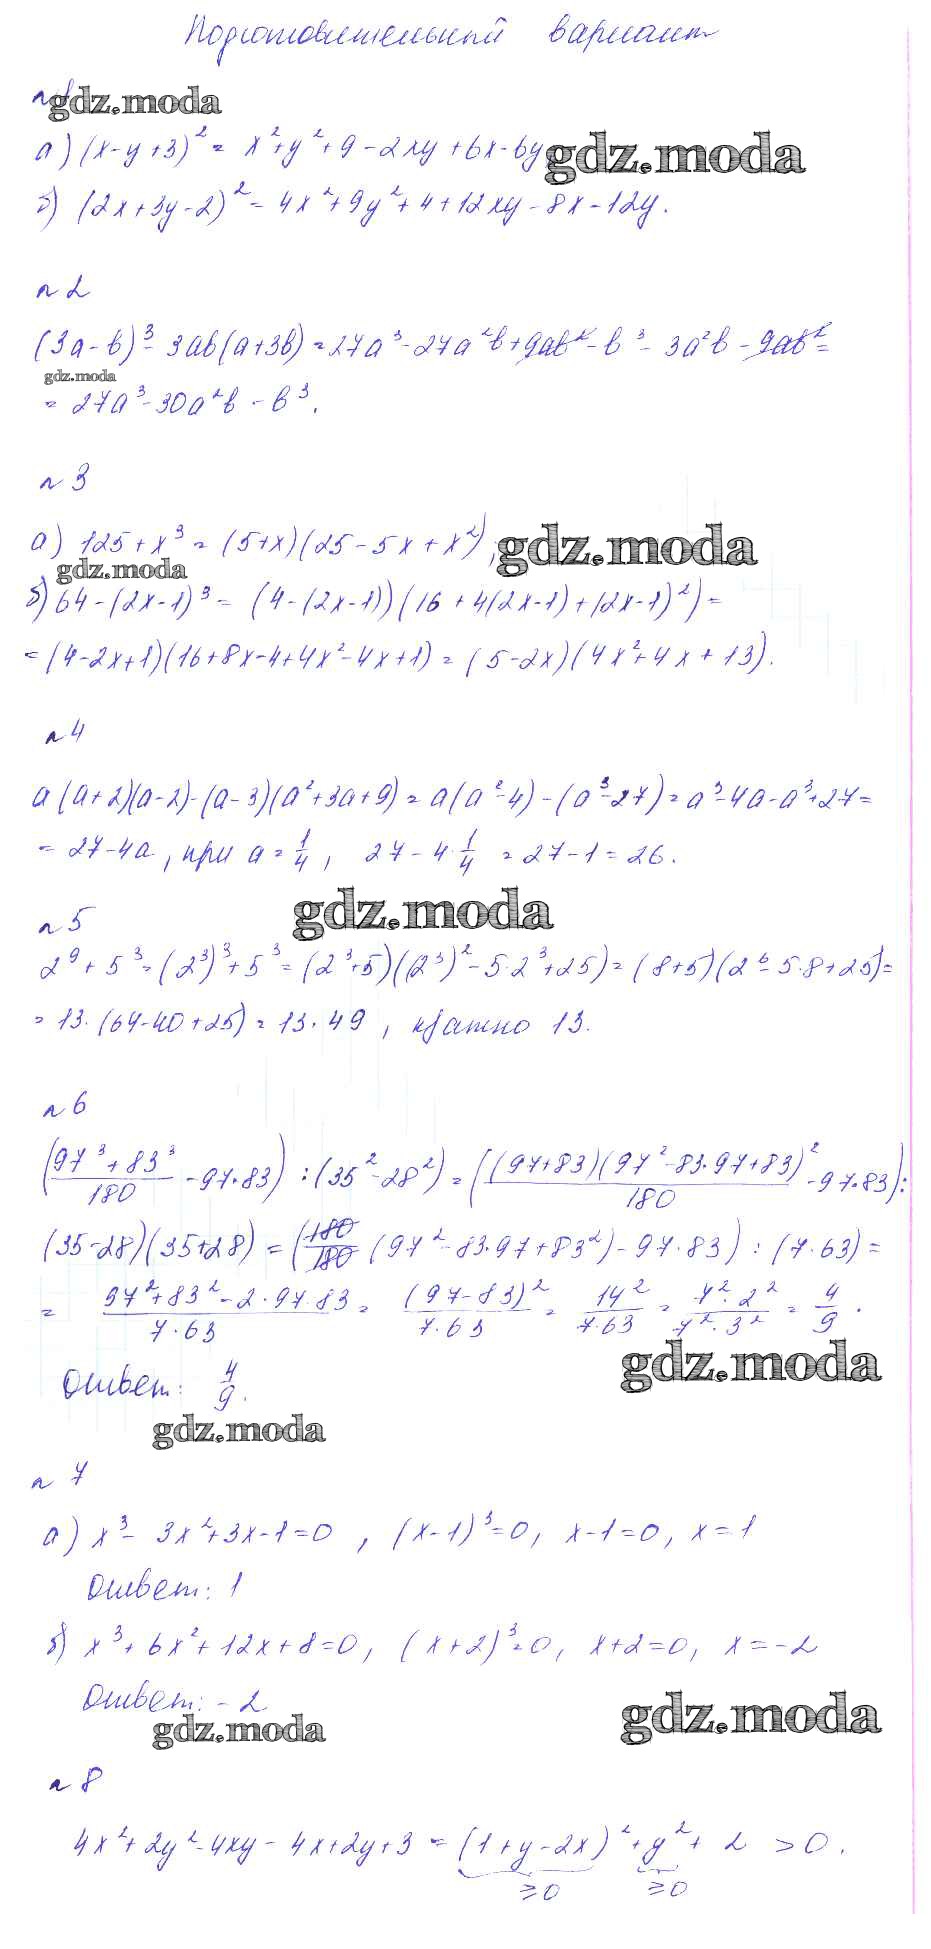 Подготовительный вариант
n 1
gdz.moda
а) (x-y+3)² = x²+y²+9-2xy+6x-6y
gdz.moda
б) (2x+3y-2)² = 4x²+9y²+4+12xy-8x-12y.
n 2
(3a-b)³-3ab(a+3b)=27a³-27a²b+9ab²-b³-3a²b-9ab²=
gdz.moda
= 27a³-30a²b-b³.
n 3
а) 125+x³ = (5+x)(25-5x+x²),
gdz.moda
gdz.moda
б) 64-(2x-1)³ = (4-(2x-1))(16+4(2x-1)+(2x-1)²)=
=(4-2x+1)(16+8x-4+4x²-4x+1)=(5-2x)(4x²+4x+13).
n 4
a(a+2)(a-2)-(a-3)(a²+3a+9)=a(a²-4)-(a³-27)=a³-4a-a³+27=
= 27-4a, при a=1/4, 27-4·1/4 =27-1=26.
gdz.moda
n 5
2⁹+5³=(2³)³+5³=(2³+5)((2³)²-5·2³+25)=(8+5)(2⁶-5·8+25)=
= 13·(64-40+25)=13·49, кратно 13.
n 6
((97³+83³)/180 -97·83):(35²-28²)=(((97+83)(97²-83·97+83)²)/180 -97·83):
(35-28)(35+28)=(180/180 (97²-83·97+83²)-97·83):(7·63)=
= (97²+83²-2·97·83)/(7·63) = (97-83)²/(7·63) = 14²/(7·63) = (7²·2²)/(7²·3²) = 4/9.
gdz.moda
Ответ: 4/9.
gdz.moda
n 7
а) x³-3x²+3x-1=0, (x-1)³=0, x-1=0, x=1
Ответ: 1
б) x³+6x²+12x+8=0, (x+2)³=0, x+2=0, x=-2
Ответ: -2
gdz.moda
gdz.moda
n 8
4x²+2y²-4xy-4x+2y+3=(1+y-2x)²+y²+2 >0.
≥0 ≥0